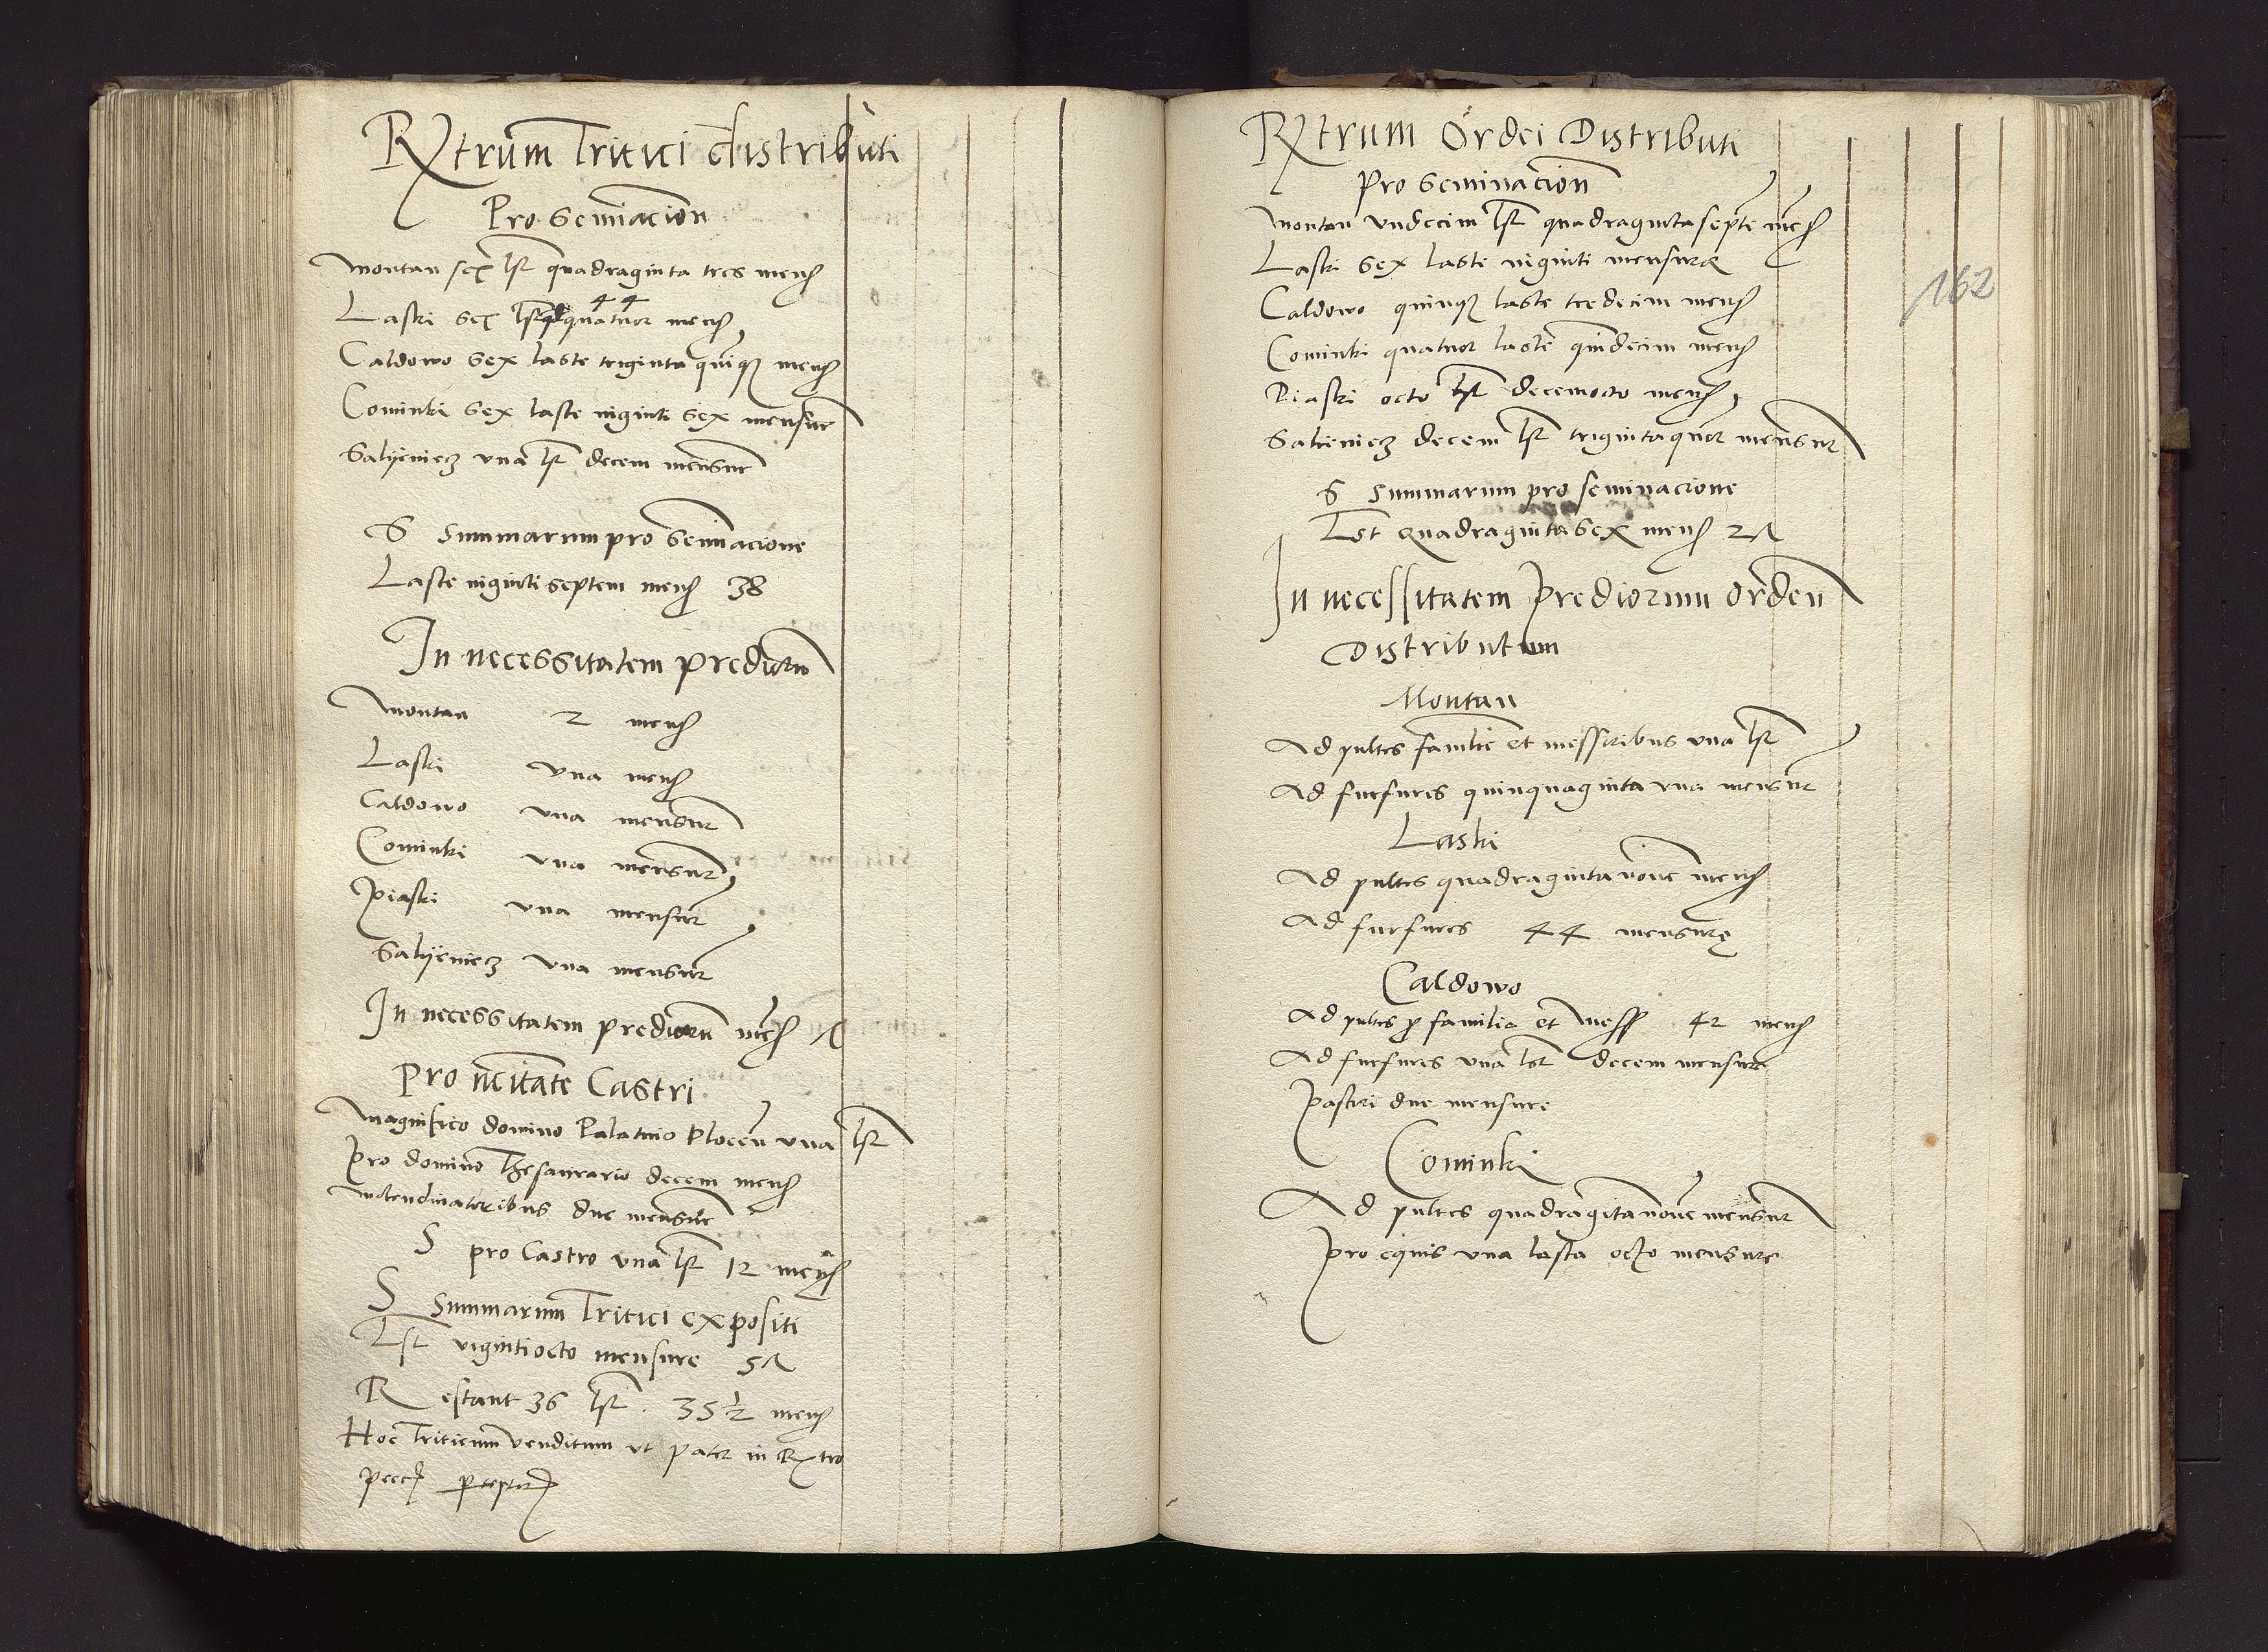 Rxtrum Tritici distributi
Pro Seminacion
Montan sex lst quadraginta tres mens
Laski sex lst 44 quatuor mens
Caldowo sex laste triginta quinqz mens
Cominki sex laste viginti sex mensure
Salyeniecz una lst decem mensure
S Summarum pro Seminacione
Laste viginti septem mens 38
In necessitatem prediorum
Montan 2 mens
Laski una mens
Caldowo una mensur
Cominki una mensur
Piaski una mensur
Salyieniecz una mensur
In necessitatem prediorum mens 7
Pro ncitate Castri
Magnifico domino Palatino Plocen una lst
Pro domino Thesaurario decem mens
Molendinatoribus due mensure
S pro Castro una lst 12 mens
S Summarum Tritici expositi
Lst viginti octo mensure 57
Restant 36 lst 35 1/2 mens
Hoc Triticum venditum ut patet in Rxtro
pecc perceptor
Rxtrum Ordei Distributi
Pro Seminacion
Montan undecim lst quadragintasepte mens
Laski sex laste viginti mensure
Caldowo quinqz laste tredecim mens
Cominki quatuor laste quindecim mens
Piaski octo lst decemocto mens
Salieniecz decem lst trigintaquor mensur
S Summarum pro seminacione
Lst quadragintasex mens 27
In necessitatem prediorum Ordeu
Distributum
Montan
Ad pultes familie et messoribus una lst
Ad furfures quinquaginta una mensur
Laski
Ad pultes quadragintanove mens
Ad furfures 44 mensure
Caldowo
Ad pultes p familia et mess 42 mens
Ad furfures una lst decem mensure
Pastori due mensure
Cominki
Ad pultes quadragintanove mensur
Pro equis una lasta octo mensure
162